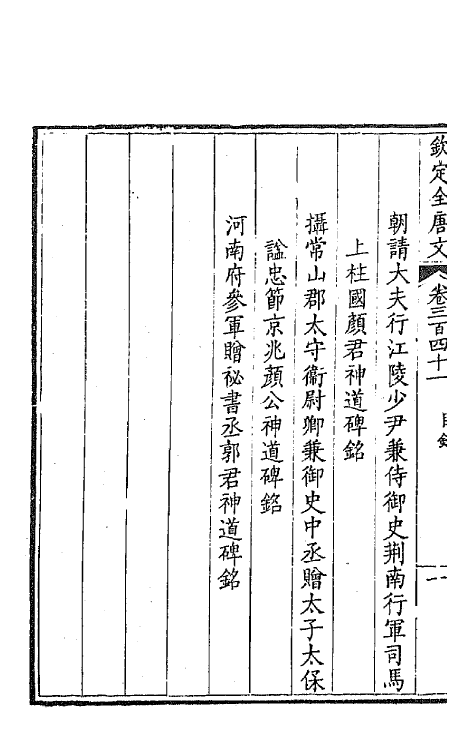 欽定全唐文 卷三百四十一 目錄
朝請大夫行江陵少尹兼侍御史荆南行軍司馬
上柱國顏君神道碑銘
攝常山郡太守衞尉卿兼御史中丞贈太子太保
諡忠節京兆顏公神道碑銘
河南府參軍贈祕書丞郭君神道碑銘